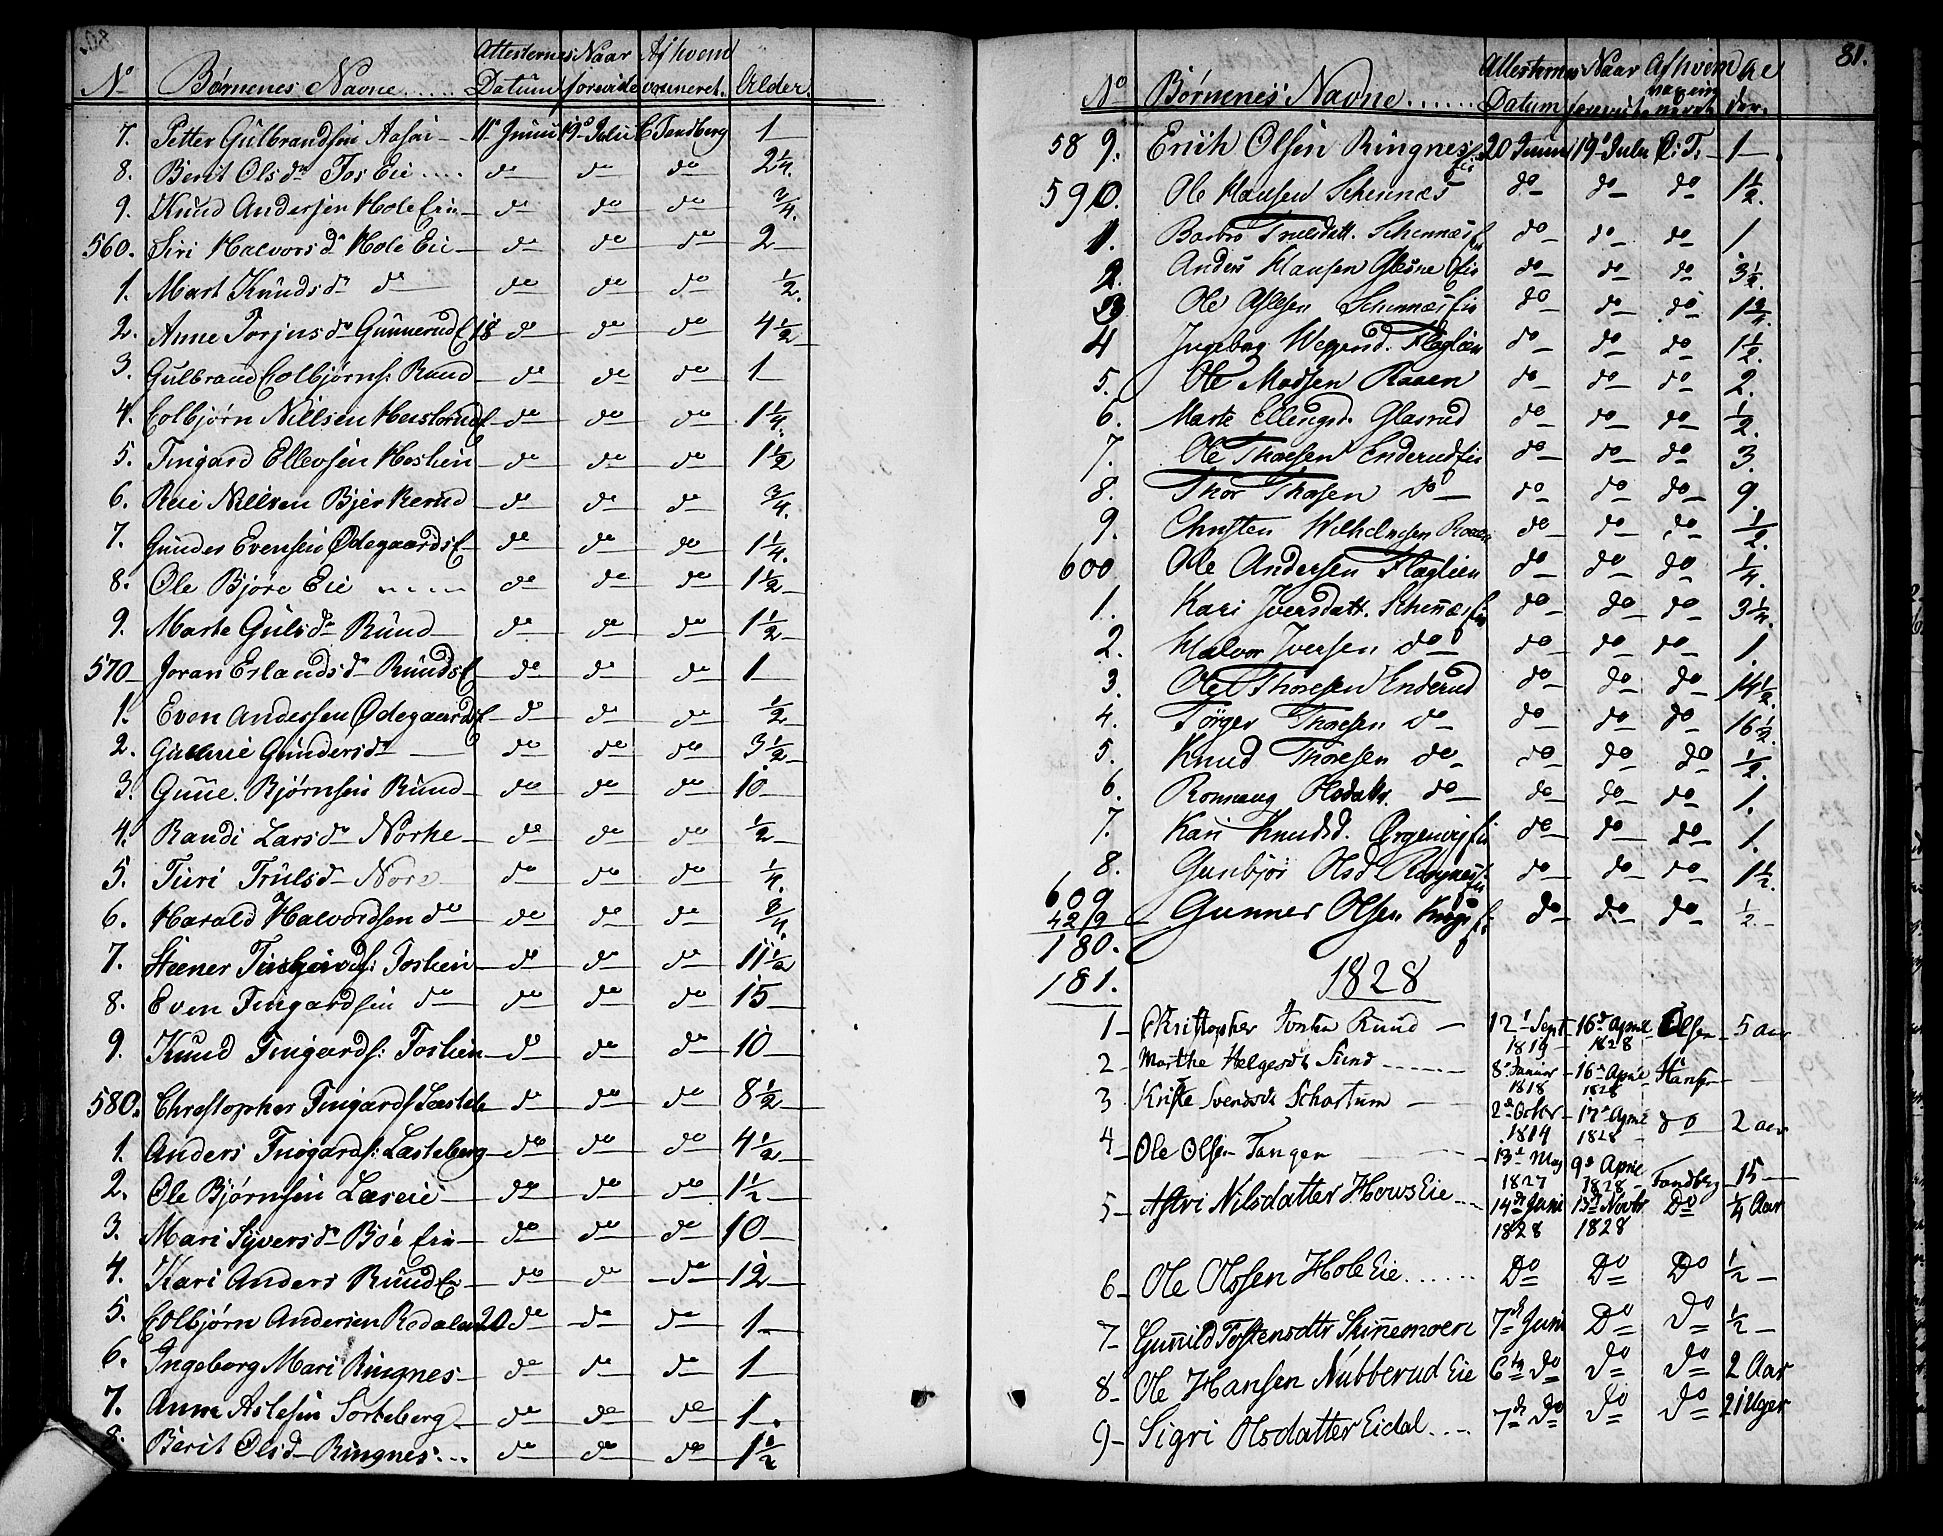 No Børnenes Navne Attesternes Datum Naar foreviist Af hvem vaccineret Alder
7. Petter Gulbrandsen 11te Junii 19de Julii C Tandberg 1
8. Berit Olsdr Fos Eie do do do 2 1/4
9. Knud Andersen Hole Eie do do do 3/4
560. Siri Halvorsdr Hole Eie do do do 2
1. Mart Knudsdr do do do do 1/2
2. Anne Torjusdr Gunnerud E 18 do do do 4 1/2
3. Gulbrand Colbjørns: Ruud do do do 1
4. Colbjørn Nillsen do do do 1 1/4
5. Tingard Ellevsen do do do 1 1/2
6. Nillsen Bjerkerud do do do 3/4
7. Gunder Evensen Ødegaards E do do do 1 1/4
8. Ole Bjøre Eie do do do 1 1/2
9. Marte Gulsdr Ruud do do do 1 1/2
570 Joran Erlandsdr Ruuds E do do do 1
1. Even Andersen Ødegaards E do do do 1/2
2. Gundersdr do do do 3 1/2
3. Bjørnsen Ruud do do do 10
4. Randi Larsdr Norhe do do do 1/2
5. Turi Trulsdr Nore do do do 1/4
6. Harald Halvordsen do do do do 3/4
7. Steener Foslien do do do 11 1/2
8. Even Tingardsen do do do do 15
9. Knud Tingards: Foslien do do do 10
580. Christopher Tingards do do do 8 1/2
1. Anders Tingards: Lesteberg do do do 4 1/2
2. Ole Bjørnsen do do do 1 1/2
3. Mari Syversdr Bøe Eie do do do 10
4. Kari Anders Ruud E do do do 12
5. Colbjørn Andersen 20 do do do 1
6. Ingeborg Mari Ringnes do do do 1
7. Anne Aslesen Sorteberg do do do 1
8. Berit Olsd Ringnes do do do 1 1/2
81.
No Børnenes Navne Attesternes Datum Naar Af hvem
589. Erich Olsen Ringnes Eie 20 Junii 19de Julii C: T. 1
590. Ole Hansen Schinnes do do do 1 1/2
1. Barbro Trulsdatt. do do do 1
2. Anders Hansen Glesne Eie do do do 3 1/2
3 Ole Aslesen do do do
4 Ingeborg Flaglien do do do 1 1/2
5. Ole Madsen Raaen do do do 2.
6. Marte Ellingsd. Glasrud do do do 1/2
7. Ole Thoresen Enderud Eie do do do 3.
8. Thor Thoresen do do do do 9.
9. Christen Wilhelmsen Raaen do do do 1/2
600 Ole Andersen Flaglien do do do 1/4
1. Kari Iversdatt. do do do 3 1/4
2. Halvor Iversen do do do do 1.
3. Ole Thoresen Enderud do do do 14 1/2
4. Törger Thoresen do do do do 16 1/2
5. Knud Thoresen do do do do 1/2
6. Ronnaug Olsdatt. do do do do 1.
7. Kari Knudsd. do do do 1.
8. Gunbjør Olsd Ringnes Eie do do do 1 1/2
609 Gunner Olsen do do do 1/2
429
180.
181.
1828
1 Christopher Ruud 12te Sept 1819 16de April 1828 Olsen 5 aar
2 Marthe Helgesdt Sund 8de Januar 1818 16de April 1828 Hansen
3 Svendsdt Schartum 2de Octbr 1814 17de April 1828 do 2 aar
4 Ole Olsen Tangen 13de May 1827 9de April 1828 Tandberg 15
5 Astri Nilsdatter Hovs Eie 14de Juni 1828 13de Novbr 1828 Do 1/4 Aar
6 Ole Olssen Hole Eie Do Do Do 1/2
7 Gunild Tostensdtr Skinnemoen 7de Juni Do Do 1/2
8 Ole Hansen Nubberud Eie 6te do do do 2 Aar
9 Sigri Olsdatter Eidal 7de do do do 21 Uger